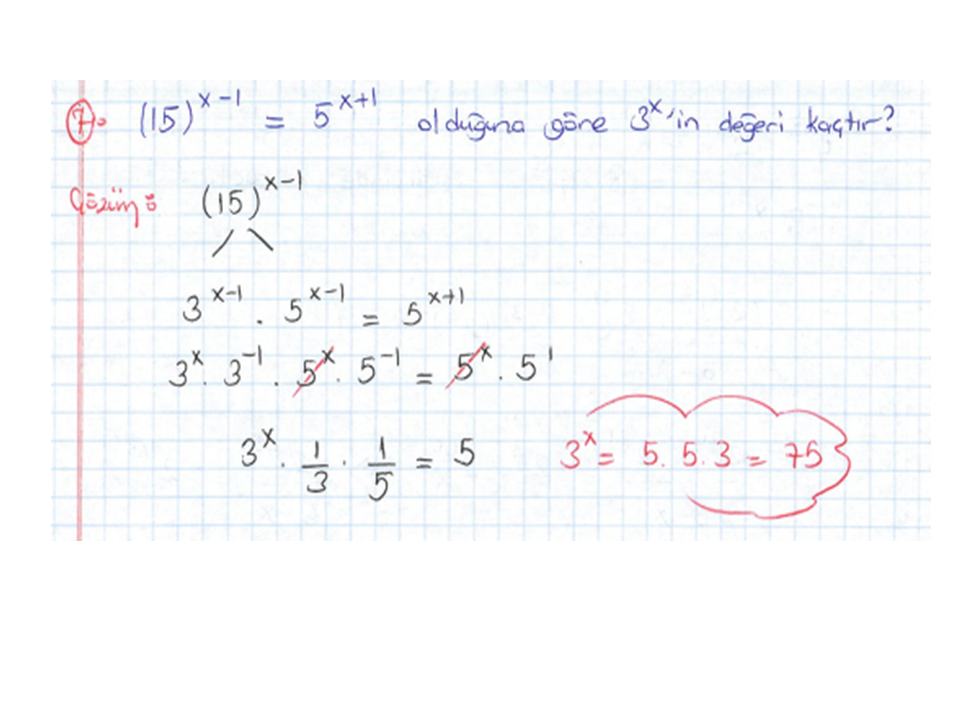 7. (15)^(x-1) = 5^(x+1) olduğuna göre 3^x'in değeri kaçtır?
Çözüm: (15)^(x-1)
3^(x-1) . 5^(x-1) = 5^(x+1)
3^x . 3^-1 . 5^x . 5^-1 = 5^x . 5^1
3^x . 1/3 . 1/5 = 5 3^x = 5. 5. 3 = 75